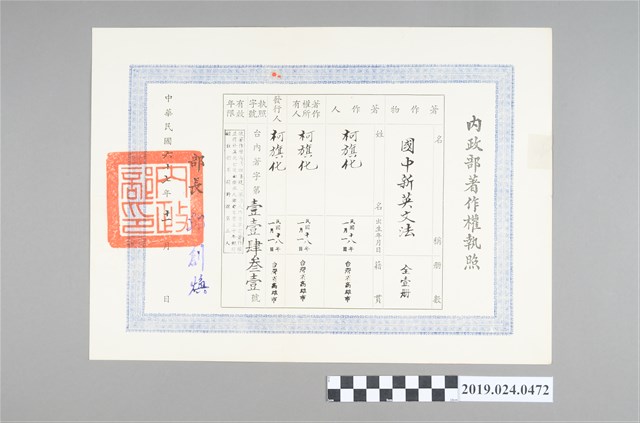 內政部著作權執照
著作物
名稱 冊數
國中新英文法 全壹冊
著作人
姓名 出生年月日 籍貫
柯旗化 民國十八年一月一日 台灣省高雄市
著作權所有人
柯旗化 民國十八年一月一日 台灣省高雄市
發行人
柯旗化 民國十八年一月一日 台灣省高雄市
執照字號
台內著字第壹壹肆叁壹號
有效年限
部長
創煥
中華民國六十七年 月 日
內政部印
2019.024.0472